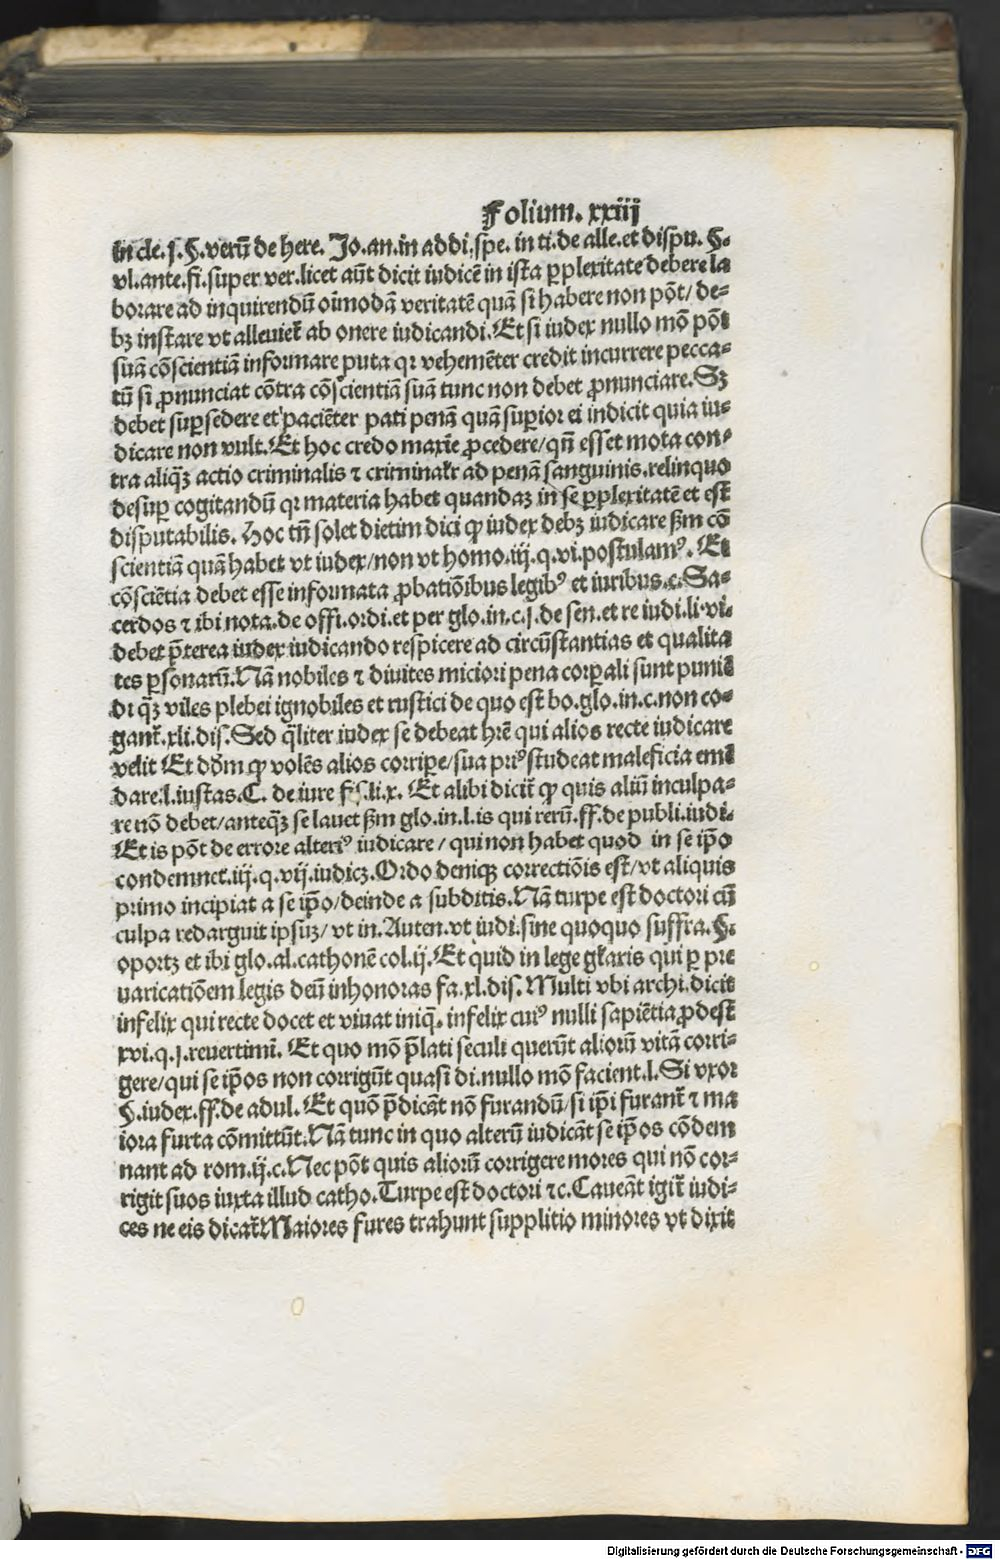 Folium. xxiij
in cle.j.§.verū de here. Jo.an.in addi.spe. in ti.de alle.et dispu. §.
vl.ante.fi.super ver.licet aūt dicit iudicē in ista ꝑplexitate debere la
borare ad inquirendū oīmodā veritatē quā si habere non pōt/ de⸗
bꝫ instare vt alleuiet̉ ab onere iudicandi. Et si iudex nullo mō pōt
suā cōscientiā informare puta qꝛ vehemēter credit incurrere pecca⸗
tū si ꝓnunciat cōtra cōscientiā suā tunc non debet ꝓnunciare. Sꝫ
debet suꝑsedere et paciēter pati penā quā suꝑior ei indicit quia iu⸗
dicare non vult. Et hoc credo maxīe ꝓcedere/ qn̄ esset mota con⸗
tra aliqꝫ̄ actio criminalis ⁊ criminalr̄ ad penā sanguinis.relinquo
desuꝑ cogitandū qꝛ materia habet quandaꝫ in se ꝑplexitatē et est
disputabilis. Hoc tn̄ solet dietim dici ꝙ iudex debꝫ iudicare ẜm cō
scientiā quā habet vt iudex/non vt homo.iij.q.vi.postulamꝰ. Et
cōsciētia debet esse informata ꝓbatiōibus legibꝰ et iuribus.c. Sa⸗
cerdos ⁊ ibi nota.de offi.ordi.et per glo.in.c.j.de sen.et re iudi.li.vi.
debet p̄terea iudex iudicando respicere ad circūstantias et qualita
tes ꝑsonarū. Nā nobiles ⁊ diuites miciori pena corꝑali sunt puniē
di qꝫ̄ viles plebei ignobiles et rustici de quo est bo.glo.in.c.non co⸗
gant̉.xli.dis. Sed qͥliter iudex se debeat hr̄e qui alios recte iudicare
velit Et dōm ꝙ volēs alios corriꝑe/sua priꝰ studeat maleficia emē
dare.l.iustas.C. de iure fis.li.x. Et alibi dicit̉ ꝙ quis aliū inculpa⸗
re nō debet/anteqꝫ̄ se lauet ẜm glo.in.l.is qui rerū.ff.de publi.iudi.
Et is pōt de errore alteriꝰ iudicare / qui non habet quod in se ip̄o
condemnet.iij.q.vij.iudicꝫ. Ordo deniqꝫ correctiōis est/vt aliquis
primo incipiat a se ip̄o/deinde a subditis. Nā turpe est doctori cū
culpa redarguit ipsuꝫ/ vt in. Auten.vt iudi.sine quoquo suffra.§.
oportꝫ et ibi glo.al.cathonē col.ij. Et quid in lege gl̄aris qui ꝑ pre
uaricatiōem legis deū inhonoras fa.xl.dis. Multi vbi archi.dicit
infelix qui recte docet et viuat iniqͥ. infelix cuiꝰ nulli sapiētia ꝓdest
xvi.q.j.reuertimī. Et quo mō p̄lati seculi querūt aliorū vitā corri⸗
gere/qui se ip̄os non corrigūt quasi di.nullo mō facient.l. Si vxor
§.iudex.ff.de adul. Et quō p̄dicāt nō furandū/si ip̄i furant̉ ⁊ ma
iora furta cōmittūt. Nā tunc in quo alterū iudicāt se ip̄os cōdem
nant ad rom.ij.c. Nec pōt quis aliorū corrigere mores qui nō cor⸗
rigit suos iuxta illud catho. Turpe est doctori ⁊c. Caueāt igit̉ iudi⸗
ces ne eis dicat̉ Maiores fures trahunt supplitio minores vt dixit
Digitalisierung gefördert durch die Deutsche Forschungsgemeinschaft - DFG